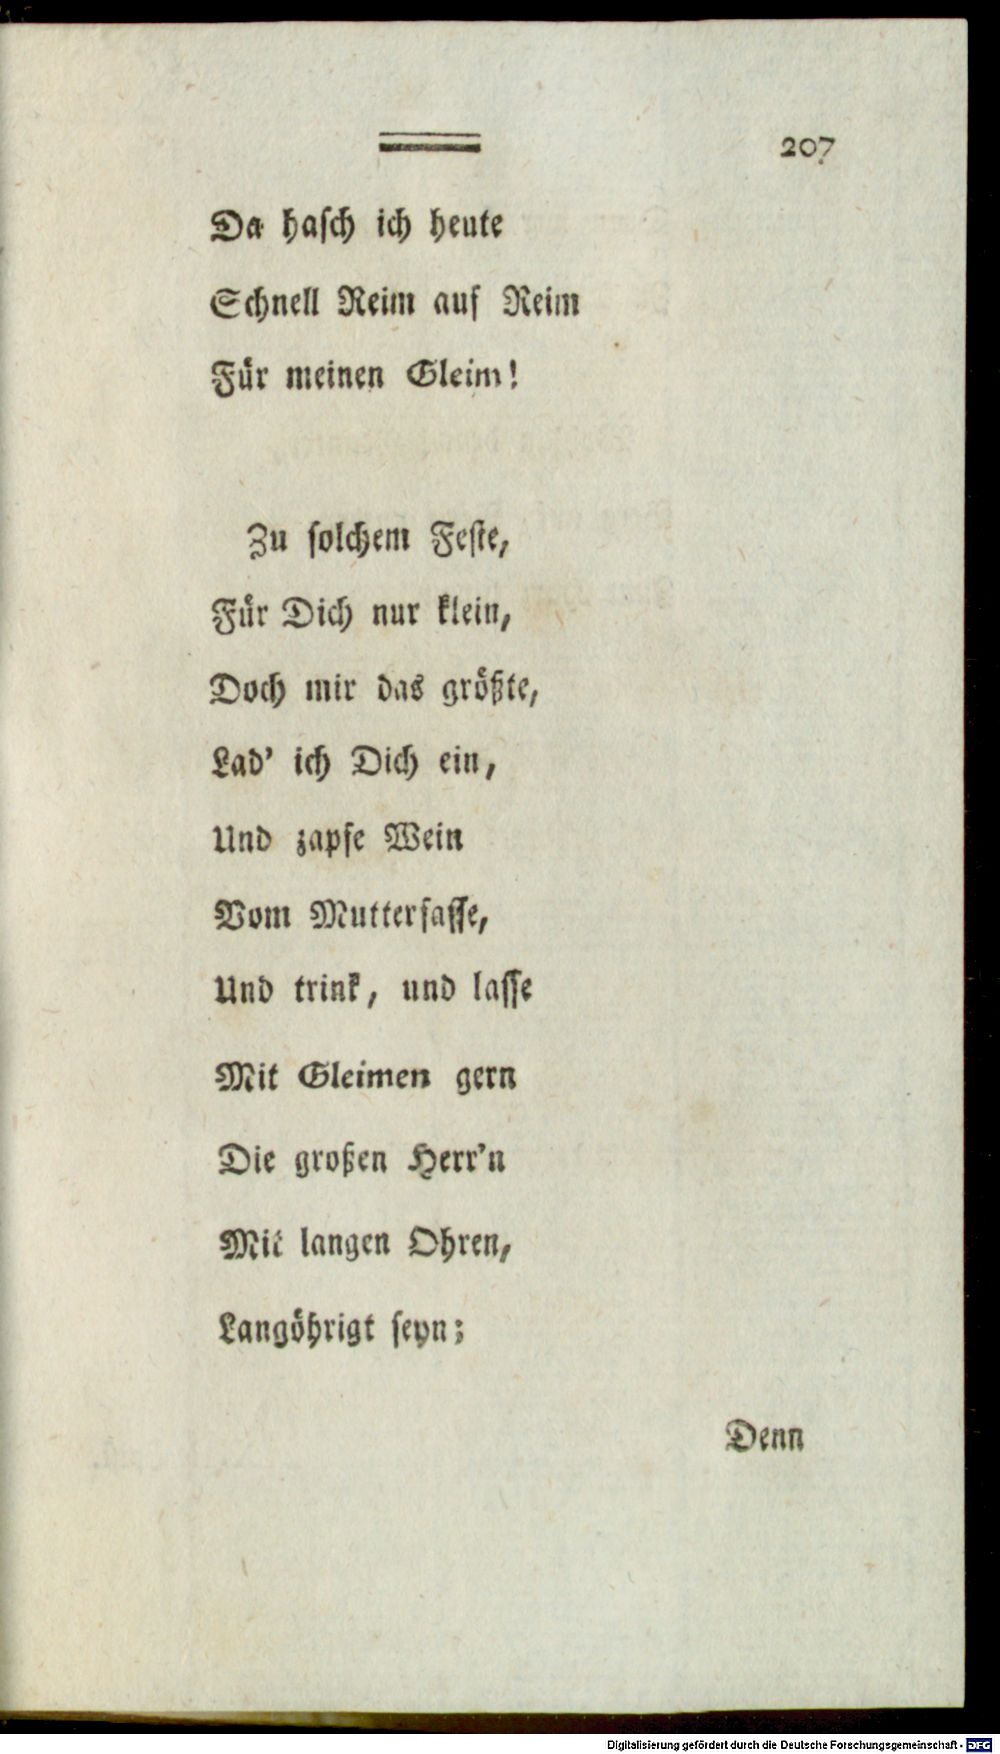 207
Da hasch ich heute
Schnell Reim auf Reim
Für meinen Gleim!
Zu solchem Feste,
Für Dich nur klein,
Doch mir das größte,
Lad' ich Dich ein,
Und zapfe Wein
Vom Mutterfasse,
Und trink, und lasse
Mit Gleimen gern
Die großen Herr'n
Mit langen Ohren,
Langöhrigt seyn;
Denn
Digitalisierung gefördert durch die Deutsche Forschungsgemeinschaft - DFG